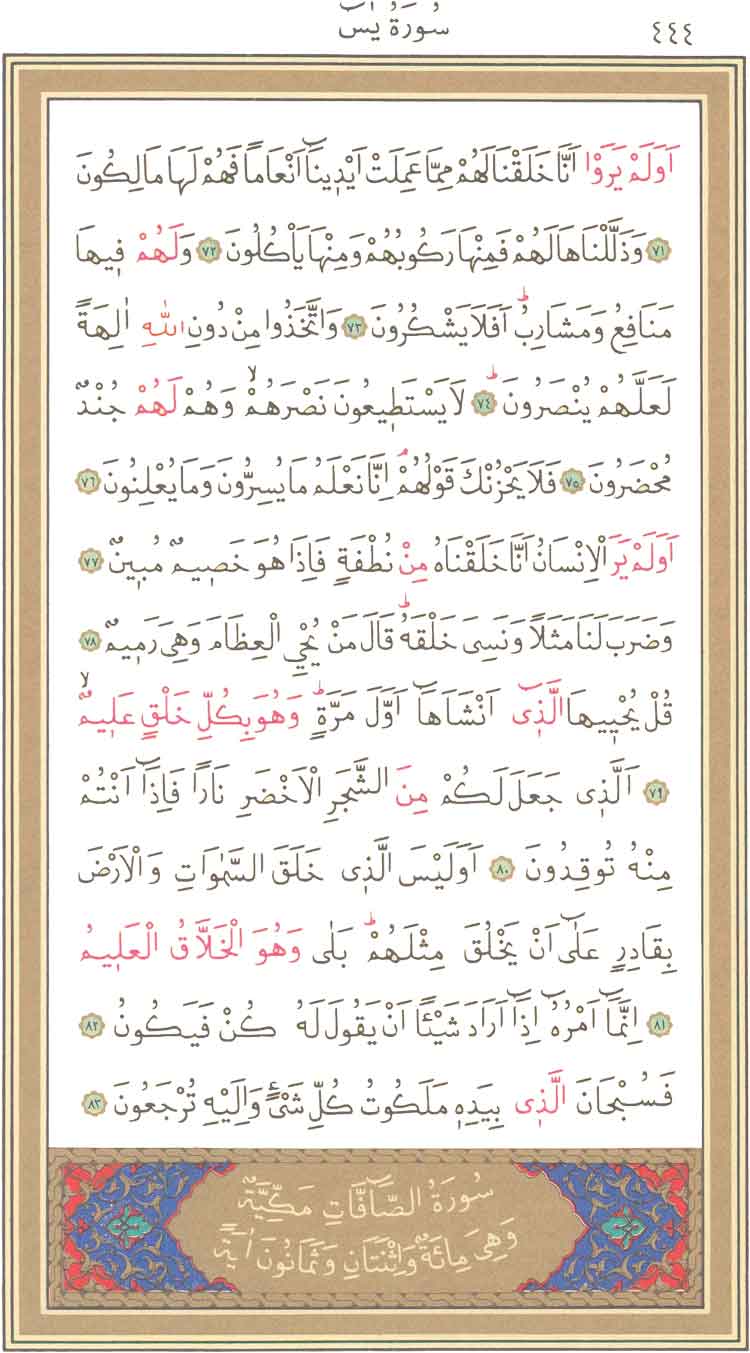 سُورَةُ يٰسٓ ٤٤٤
اَوَلَمْ يَرَوْا اَنَّا خَلَقْنَا لَهُمْ مِمَّا عَمِلَتْ اَيْدٖينَٓا اَنْعَاماً فَهُمْ لَهَا مَالِكُونَ
﴿٧١﴾ وَذَلَّلْنَاهَا لَهُمْ فَمِنْهَا رَكُوبُهُمْ وَمِنْهَا يَأْكُلُونَ ﴿٧٢﴾ وَلَهُمْ فٖيهَا
مَنَافِعُ وَمَشَارِبُۜ اَفَلَا يَشْكُرُونَ ﴿٧٣﴾ وَاتَّخَذُوا مِنْ دُونِ اللّٰهِ اٰلِهَةً
لَعَلَّهُمْ يُنْصَرُونَۜ ﴿٧٤﴾ لَا يَسْتَطٖيعُونَ نَصْرَهُمْۙ وَهُمْ لَهُمْ جُنْدٌ
مُحْضَرُونَ ﴿٧٥﴾ فَلَا يَحْزُنْكَ قَوْلُهُمْۘ اِنَّا نَعْلَمُ مَا يُسِرُّونَ وَمَا يُعْلِنُونَ ﴿٧٦﴾
اَوَلَمْ يَرَ الْاِنْسَانُ اَنَّا خَلَقْنَاهُ مِنْ نُطْفَةٍ فَاِذَا هُوَ خَصٖيمٌ مُبٖينٌ ﴿٧٧﴾
وَضَرَبَ لَنَا مَثَلاً وَنَسِىَ خَلْقَهُۜ قَالَ مَنْ يُحْيِ الْعِظَامَ وَهِىَ رَمٖيمٌ ﴿٧٨﴾
قُلْ يُحْيٖيهَا الَّذٖٓى اَنْشَاَهَٓا اَوَّلَ مَرَّةٍۜ وَهُوَ بِكُلِّ خَلْقٍ عَلٖيمٌۙ
﴿٧٩﴾ اَلَّذٖى جَعَلَ لَكُمْ مِنَ الشَّجَرِ الْاَخْضَرِ نَاراً فَاِذَٓا اَنْتُمْ
مِنْهُ تُوقِدُونَ ﴿٨٠﴾ اَوَلَيْسَ الَّذٖى خَلَقَ السَّمٰوَاتِ وَالْاَرْضَ
بِقَادِرٍ عَلٰٓى اَنْ يَخْلُقَ مِثْلَهُمْۜ بَلٰى وَهُوَ الْخَلَّاقُ الْعَلٖيمُ
﴿٨١﴾ اِنَّمَٓا اَمْرُهُٓ اِذَٓا اَرَادَ شَيْـٔاً اَنْ يَقُولَ لَهُ كُنْ فَيَكُونُ ﴿٨٢﴾
فَسُبْحَانَ الَّذٖى بِيَدِهٖ مَلَكُوتُ كُلِّ شَىْءٍ وَاِلَيْهِ تُرْجَعُونَ ﴿٨٣﴾
سُورَةُ الصَّٓافَّاتِ مَكِّيَّةٌ
وَهِىَ مِائَةٌ وَاِثْنَتَانِ وَثَمَانُونَ اٰيَةً